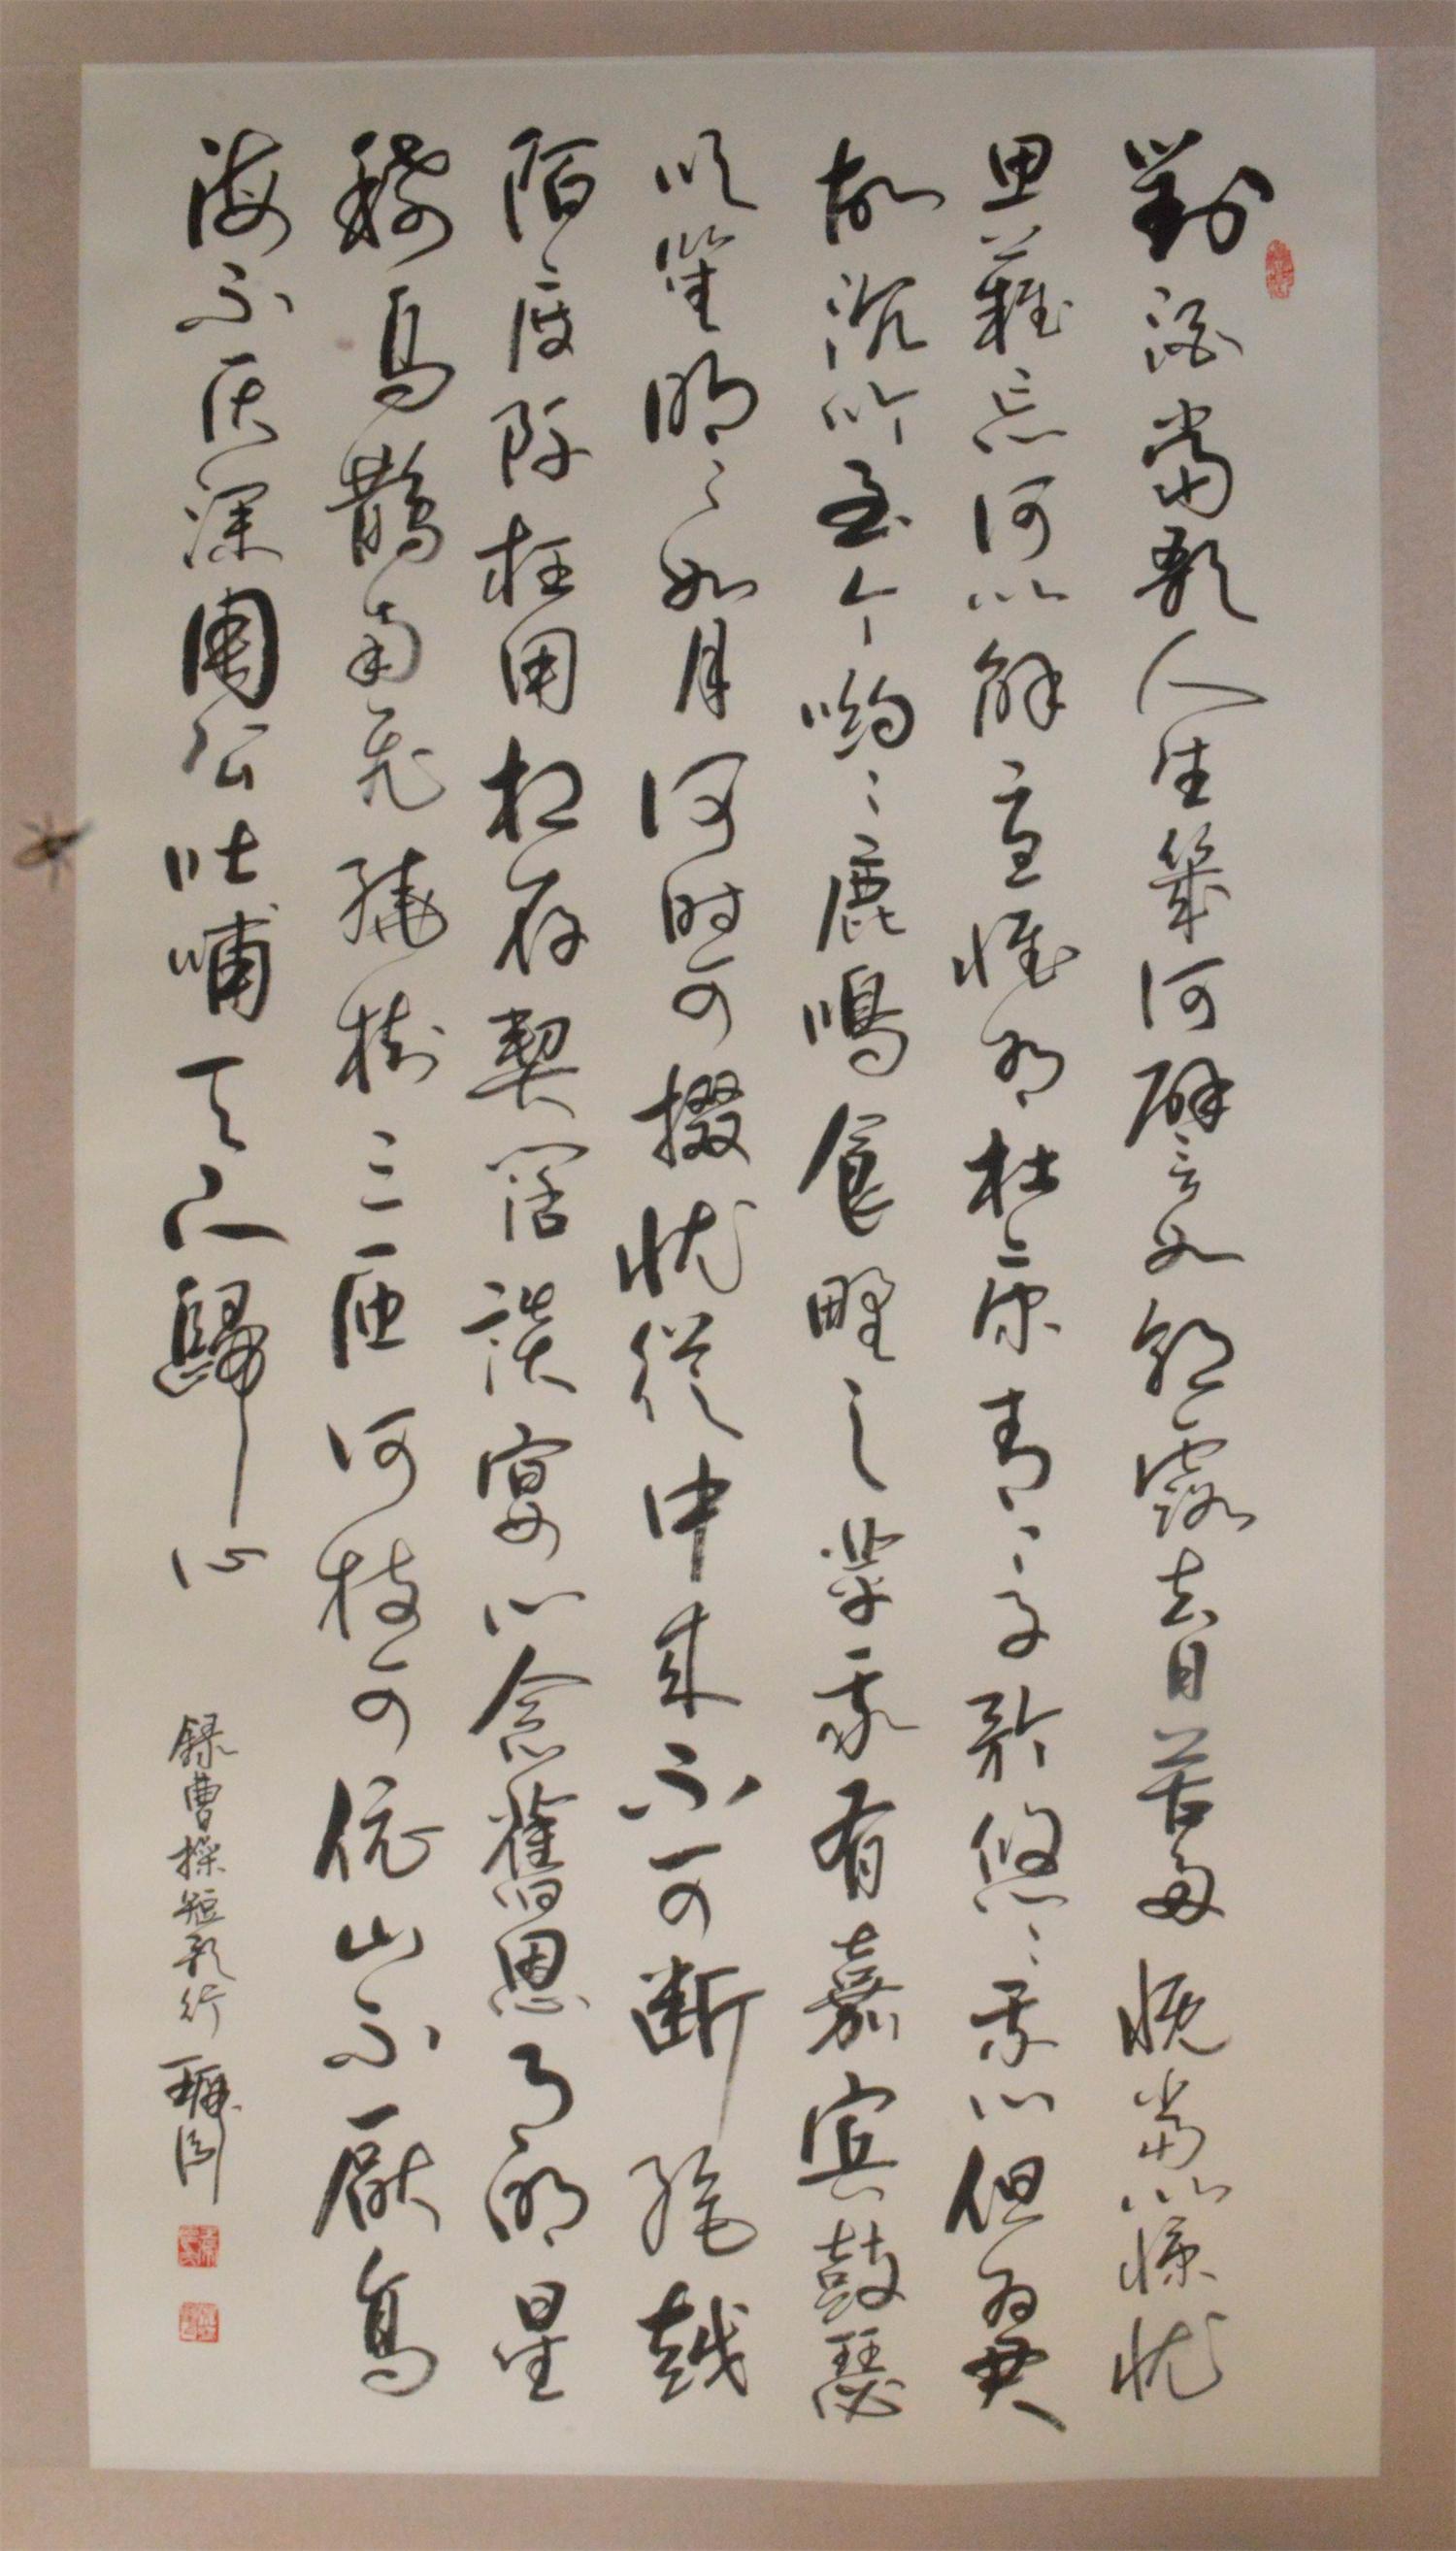 對酒當歌人生幾何譬如朝露去日苦多慨當以慷忧
思難忘何以解憂惟有杜康青〻子衿悠〻我心但為君
故沉吟至今呦〻鹿鳴食野之苹我有嘉賓鼓瑟
吹笙明〻如月何时可掇忧從中来不可断絶越
陌度阡枉用相存契闊談宴心念舊恩月明星
稀烏鵲南飛繞樹三匝何枝可依山不厭高
海不厌深周公吐哺天下歸心
録曹操短歌行